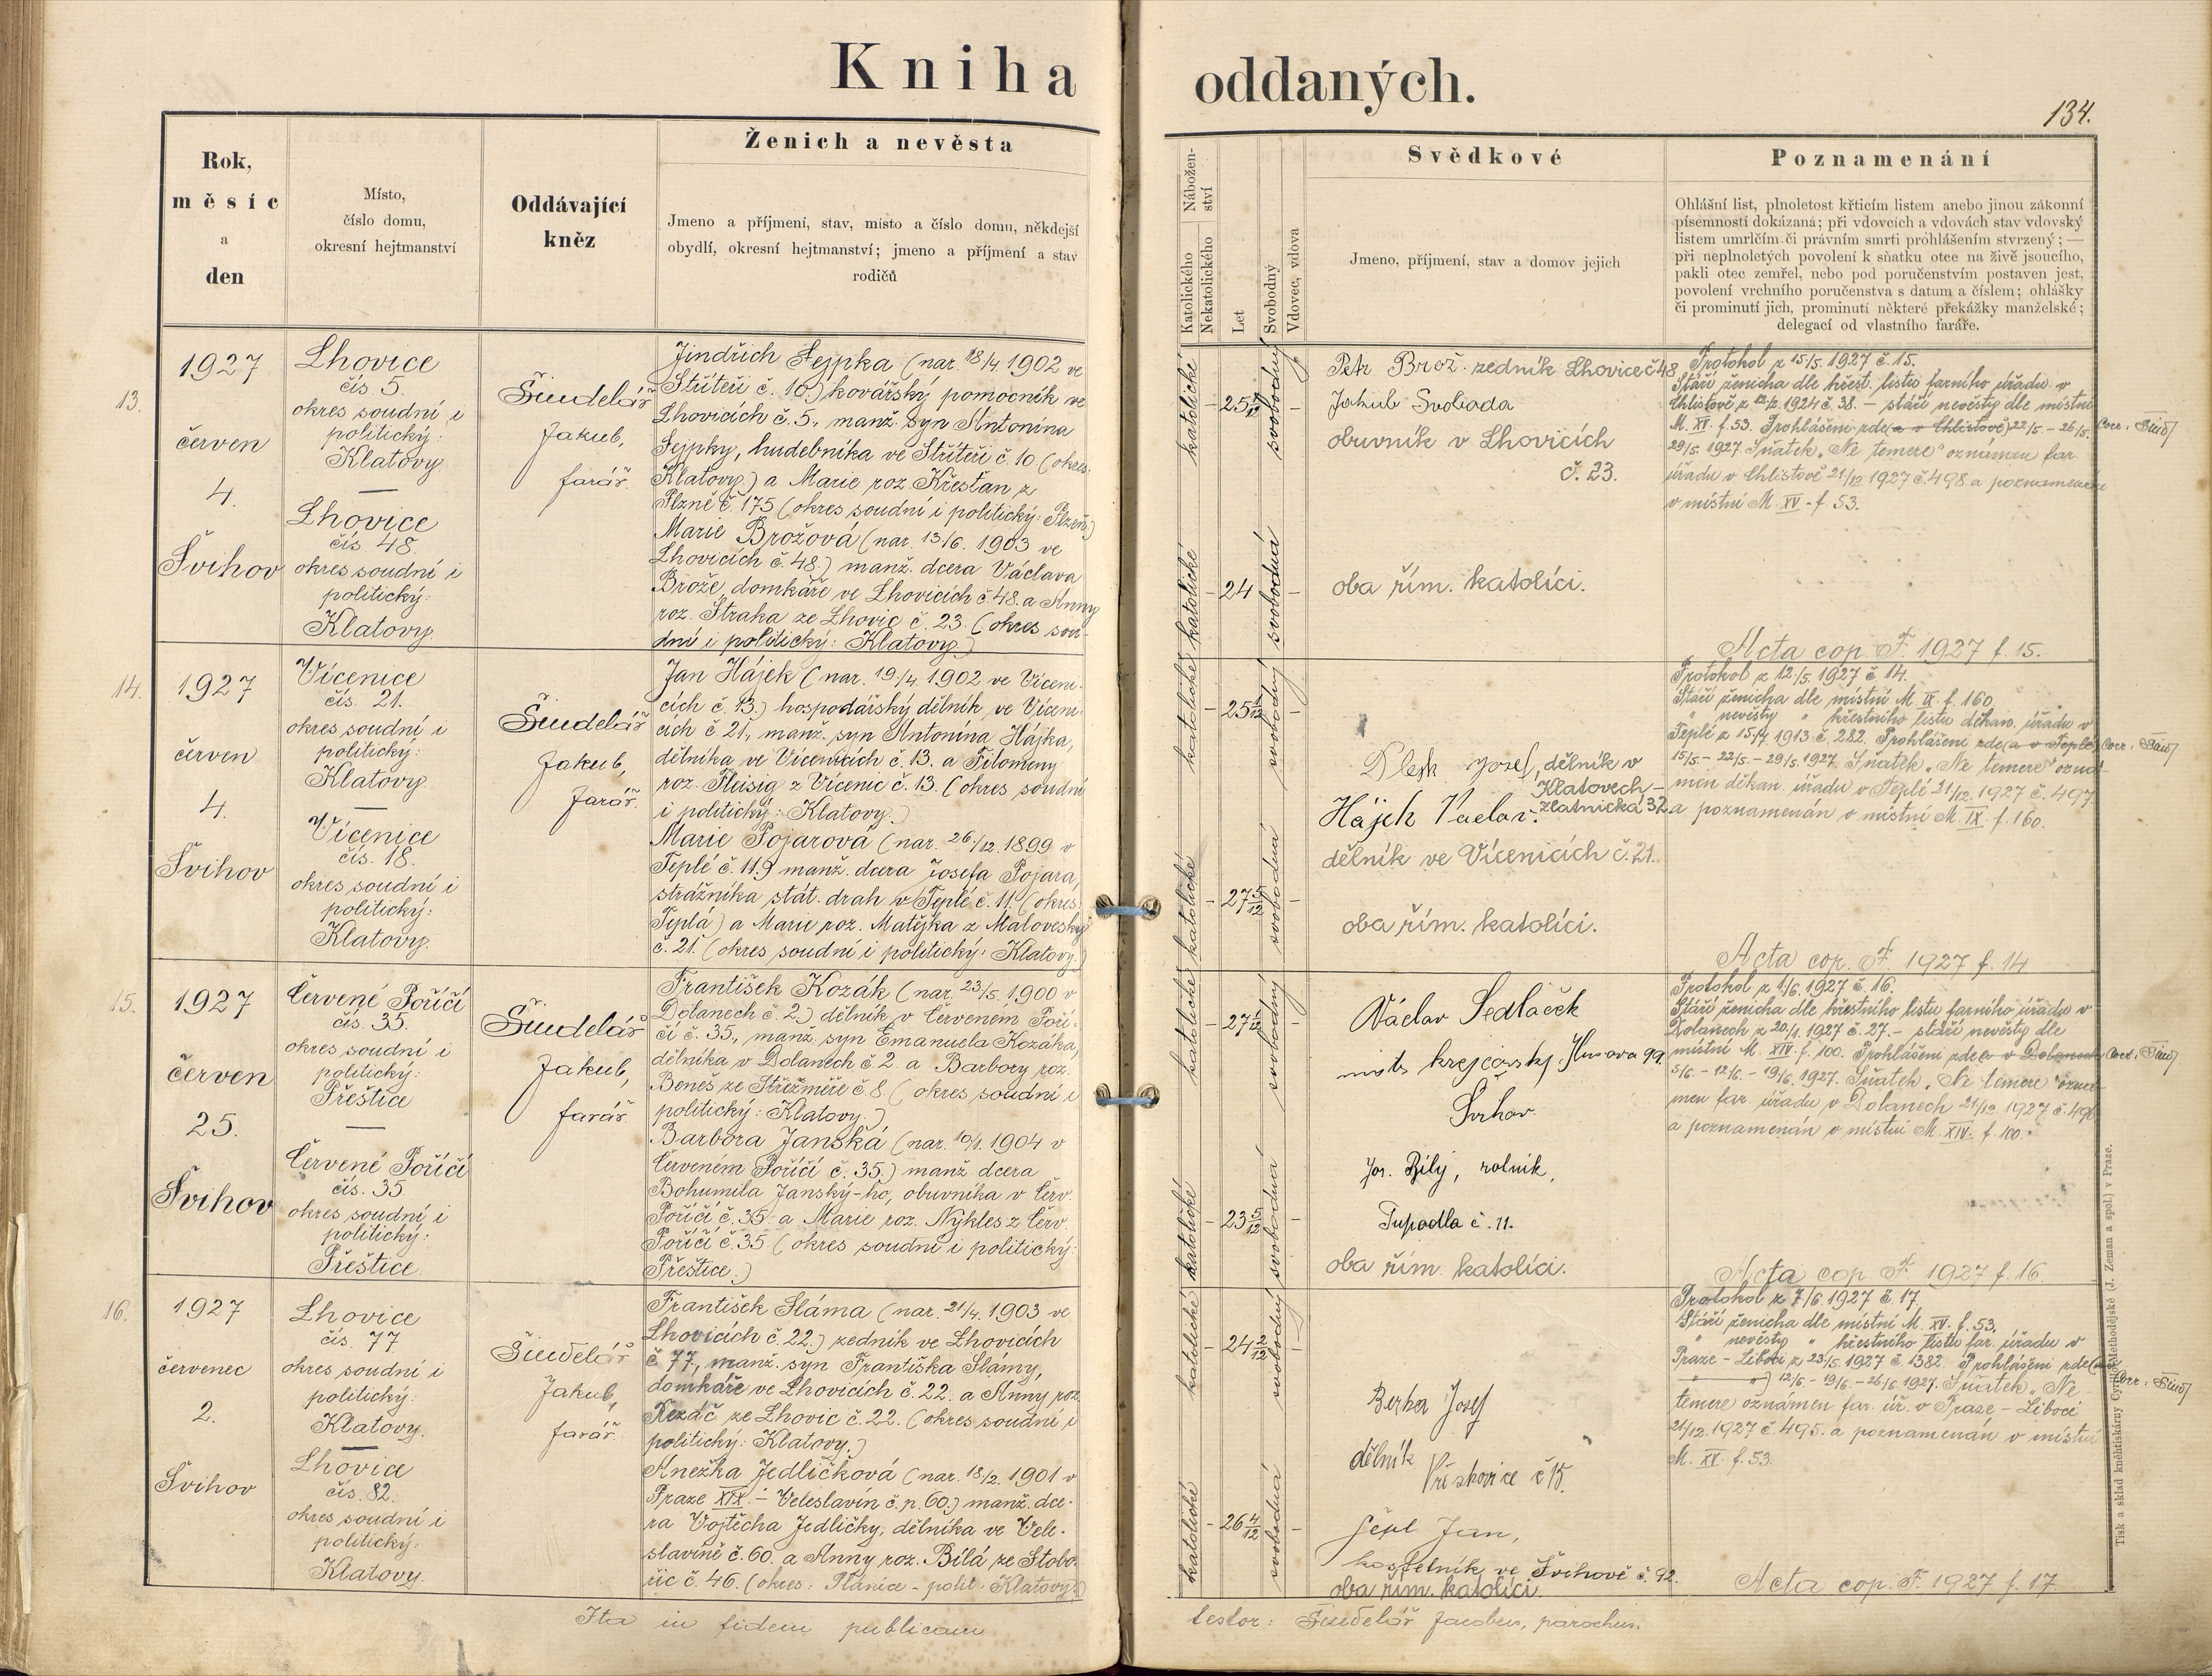 Kniha oddaných.
134.
Rok,
měsíc
a
den
Místo,
číslo domu,
okresní hejtmanství
Oddávající
kněz
Ženich a nevěsta
Jmeno a příjmení, stav, místo a číslo domu, někdejší
obydlí, okresní hejtmanství; jmeno a příjmení a stav
rodičů
Nábožen-
ství
Katolického
Nekatolického
Let
Svobodný
Vdovec, vdova
Svědkové
Jmeno, příjmení, stav a domov jejich
Poznamenání
Ohlášní list, plnoletost křticím listem anebo jinou zákonní
písemností dokázaná; při vdovcích a vdovách stav vdovský
listem umrlčím či právním smrti prohlášením stvrzený; —
při neplnoletých povolení k sňatku otce na živě jsoucího,
pakli otec zemřel, nebo pod poručenstvím postaven jest,
povolení vrchního poručenstva s datum a číslem; ohlášky
či prominutí jich, prominutí některé překážky manželské;
delegací od vlastního faráře.
13.
1927
červen
4.
Švihov
Lhovice
čís 5.
okres soudní i
politický:
Klatovy
Lhovice
čís. 48.
okres soudní i
politický:
Klatovy
Šindelář
Jakub,
farář.
Jindřich Fejpka (nar. 18/4 1902 ve
Stříteři č. 10.) kovářský pomocník ve
Lhovicích č. 5., manž. syn Antonína
Fejpky, hudebníka ve Stříteři č. 10 (okres:
Klatovy.) a Marie roz. Křesťan z
Plzně č. 175 (okres soudní i politický: Plzeň.)
Marie Brožová (nar. 13/6. 1903 ve
Lhovicích č. 48.) manž. dcera Václava
Brože, domkáře ve Lhovicích č. 48. a Anny
roz. Straka ze Lhovic č. 23. (okres sou-
dní i politický: Klatovy.)
katolické
25
svobodný
katolické
24
svobodná
Petr Brož zedník Lhovice č 48
Jakub Svoboda
obuvník v Lhovicích
č. 23.
oba řím. katolíci.
Protokol z 15/5. 1927 č. 15.
Stáří ženicha dle křest. listu farního úřadu v
Chlistově z 12/2. 1924 č. 38. — stáří nevěsty dle místní
M. XV. f. 53. Prohlášeni zde (a v Chlistově) 22/5 - 26/5. Corr. Šind
29/5. 1927. Sňatek „Ne temere" oznámen far.
úřadu v Chlistově 21/12 1927 č. 498. a poznamenán
v místní M. XV - f. 53.
Acta cop. F. 1927 f. 15.
14.
1927
červen
4.
Švihov
Vícenice
čís. 21.
okres soudní i
politický:
Klatovy
Vícenice
čís. 18.
okres soudní i
politický:
Klatovy.
Šindelář
Jakub,
farář.
Jan Hájek (nar. 19./4. 1902 ve Víceni-
cích č. 13.) hospodářský dělník ve Víceni-
cích č 21., manž. syn Antonína Hájka,
dělníka ve Vícenicích č. 13. a Filomeny
roz. Fleisig z Vícenic č. 13 (okres soudní
i politický: Klatovy.)
Marie Pojarová (nar. 26/12. 1899 v
Teplé č. 119 manž. dcera Josefa Pojara,
strážníka stát. drah v Teplé č. 11. (okres:
Teplá) a Marie roz. Matějka z Malovesky
č. 21. (okres soudní i politický: Klatovy.)
katolické
25 1/12
svobodný
katolické
27 5/12
svobodná
Josef, dělník v
Klatovech -
Hájek Václav. zlatnická 32.
dělník ve Vícenicích č. 21.
oba řím. katolíci.
Protokol z 12./5. 1927 č 14.
Stáří ženicha dle místní M. IX. f. 160.
" nevěsty " křestního listu děkan. úřadu v
Teplé z 15/7. 1913 č. 282. Prohlášeni zde (a v Teplé) Corr. Šind
15/5. - 22/5. - 29/5. 1927. Sňatek „Ne temere" ozná-
men děkan. úřadu v Teplé 21/12. 1927 č. 497
a poznamenán v místní M. IX. f. 160.
Acta cop. F. 1927 f. 14
15.
1927
červen
25.
Švihov
Červené Poříčí
čís. 35.
okres soudní i
politický:
Přeštice
Červené Poříčí
čís. 35
okres soudní i
politický:
Přeštice.
Šindelář
Jakub,
farář
František Kozák (nar. 23/5. 1900 v
Dolanech č. 2.) dělník v Červeném Poří-
čí č. 35., manž. syn Emanuela Kozáka,
dělníka v Dolanech č. 2. a Barbory roz.
Beneš ze Střežmíře č. 8. (okres soudní i
politický: Klatovy.)
Barbora Janská (nar. 10/1. 1904 v
Červeném Poříčí č. 35.) manž dcera
Bohumila Janský-ho, obuvníka v Červ.
Poříčí č. 35 a Marie roz. Nykles z Červ.
Poříčí č. 35 (okres soudní i politický:
Přeštice.)
katolické
27 1/12
svobodný
katolické
23 5/12
svobodná
Václav Sedláček
mistr krejčovský Husova 99.
Švihov
Jos. Bílý, rolník,
Tupadla č. 11.
oba řím. katolíci.
Protokol z 1/6. 1927 č. 16.
Stáří ženicha dle křestního listu farního úřadu v
Dolanech z 20/1. 1927 č. 27. - stáří nevěsty dle
místní M. XIV. f. 100. Prohlášeni zde (a v Dolanech Corr. Šind
5/6. - 12/6. - 19/6. 1927. Sňatek „Ne temere" ozná-
men far. úřadu v Dolanech 21/12. 1927 č. 496
a poznamenán v místní M. XIV. f. 100.
Acta cop F. 1927 f. 16.
16.
1927
červenec
2.
Švihov
Lhovice
čís. 77
okres soudní i
politický:
Klatovy.
Lhovice
čís. 82.
okres soudní i
politický:
Klatovy.
Šindelář
Jakub,
farář.
František Sláma (nar. 21/4. 1903 ve
Lhovicích č. 22.) zedník ve Lhovicích
č. 77., manž. syn Františka Slámy,
domkáře ve Lhovicích č. 22. a Anny roz.
Rezáč ze Lhovic č. 22. (okres soudní i
politický: Klatovy.)
Anežka Jedličková (nar. 18/2. 1901 v
Praze XIX. - Veleslavín č. p. 60.) manž. dce-
ra Vojtěcha Jedličky, dělníka ve Vele-
slavíně č. 60. a Anny roz. Bílá ze Stobo-
řic č. 46. (okres: Plánice - polit. Klatovy.)
katolické
24 2/12
svobodný
katolické
26 4/12
svobodná
Josef
dělník
Vřeskovice č 15.
Jan,
kostelník ve Švihově č. 92.
oba řím. katolíci
Protokol z 7/6. 1927 č. 17.
Stáří ženicha dle místní M. XV. f. 53.
" nevěsty " křestního listu far. úřadu v
Praze - Liboci z 23/5. 1927 č 1382. Prohlášeni zde (a
" ") 12/6 - 19/6. - 26/6. 1927. Sňatek „Ne Corr. Šind
temere oznámen far. úř. v Praze - Liboci
21/12. 1927 č. 495. a poznamenán v místní
M. XV. f. 53.
Acta cop. F. 1927 f. 17.
Ita in fidem publicam testor: Šindelář Jacobus, parochus.
Tisk a sklad knihtiskárny Cyrillo-Methodějské (J. Zeman a spol.) v Praze.